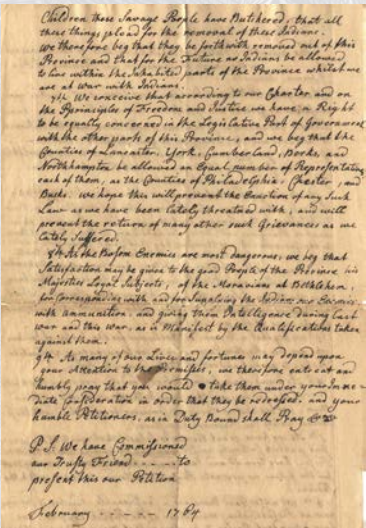 Children these Savage People have Butchered; that all
these things plead for the removal of these Indians.
We therefore beg that they be forthwith removed out of this
Province and that for the Future no Indians be allowed
to live within the Inhabited parts of the Province whilst we
are at war with Indians.
7th. We conceive that according to our Charter and on
the Principles of Freedom and Justice we have a Right
to be equally concerned in the Legislative Part of Government
with the other parts of this Province, and we beg that the
Counties of Lancaster, York, Cumberland, Berks, and
Northampton be allowed an Equal number of Representatives
each of them, as the Counties of Philadelphia, Chester, and
Bucks. we hope this will prevent the Enaction of any Such
Law as we have been lately threatned with, and will
prevent the return of many other such Grievances as we
lately Suffered.
8th As the Bosom Enemies are most dangerous, we beg that
Satisfaction may be given to the good People of the Province his
Majesties Loyal Subjects, of the Moravians at Bethlehem,
for Corresponding with and for Supplying the Indians our Enemies
with Ammunition, and giving them Intelligence during last
war and this war, as is Manifest by the Qualifications taken
against them.
9th As many of our Lives and fortunes may depend upon
your Attention to the Premises, we therefore entreat and
humbly pray that you would take them under your Imme-
diate Consideration in order that they be redressed. and your
humble Petitioners, as in Duty Bound shall Pray &c
P.S. We have Commissioned
our Trusty Friend - - - - to
present this our Petition
February - - - - - 1764